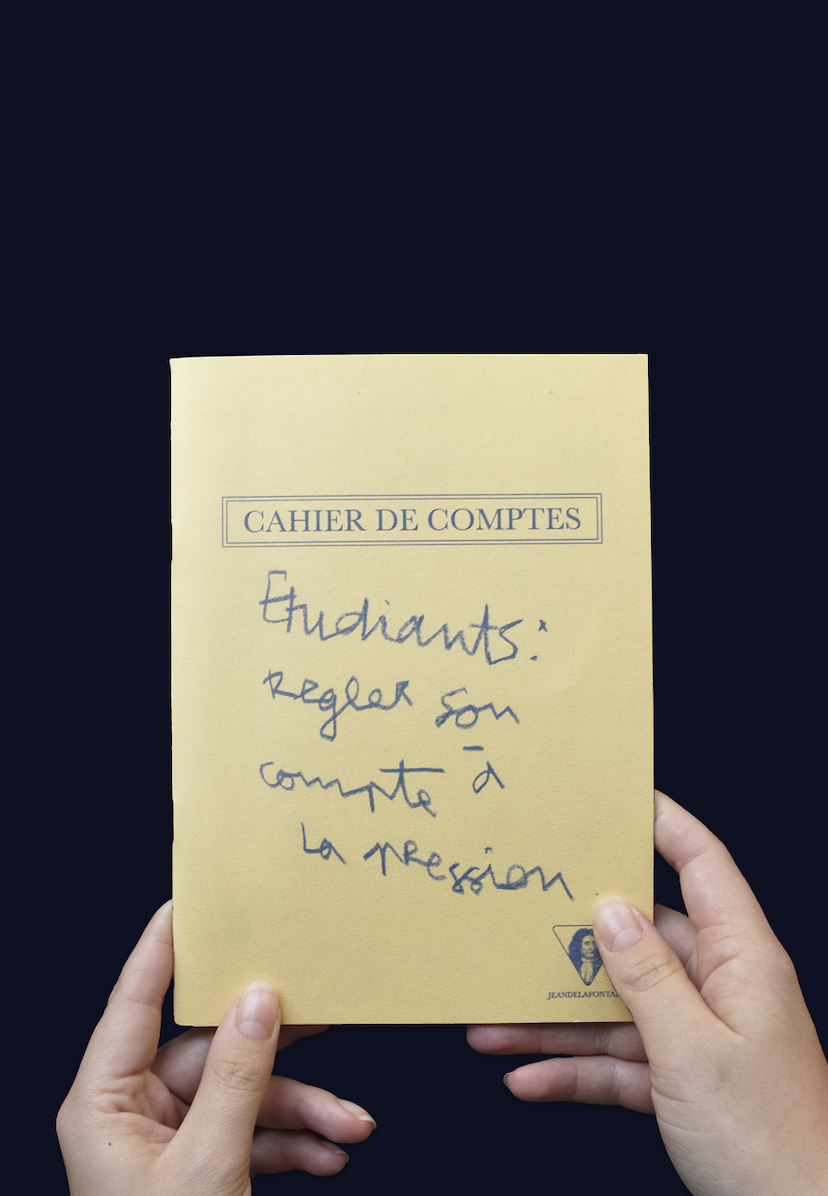 CAHIER DE COMPTES
Etudiants:
Regler son
compte à
la pression
JEANDELAFONTA